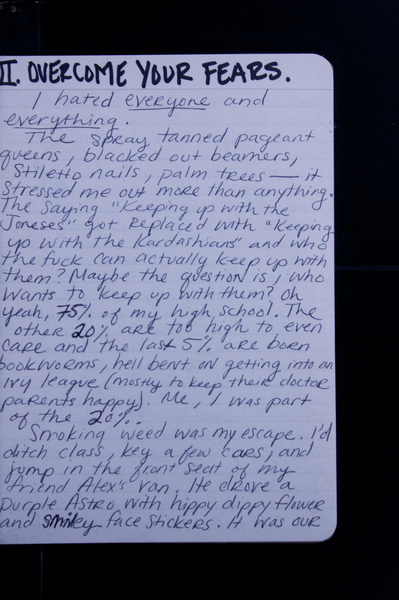 II. OVERCOME YOUR FEARS.
I hated everyone and
everything.
The spray tanned pageant
queens, blacked out beamers,
Stiletto nails, palm trees — it
stressed me out more than anything.
The saying "Keeping up with the
Joneses" got replaced with "Keeping
up with the Kardashians" and who
the fuck can actually keep up with
them? Maybe the question is, who
wants to keep up with them? Oh
yeah, 75% of my high school. The
other 20% are too high to even
care and the last 5% are born
bookworms, hell bent on getting into an
ivy league (mostly to keep their doctor
parents happy). Me, I was part
of the 20%.
Smoking weed was my escape. I'd
ditch class, key a few cars, and
jump in the front seat of my
friend Alex's van. He drove a
purple Astro with hippy dippy flower
and smiley face stickers. It was our